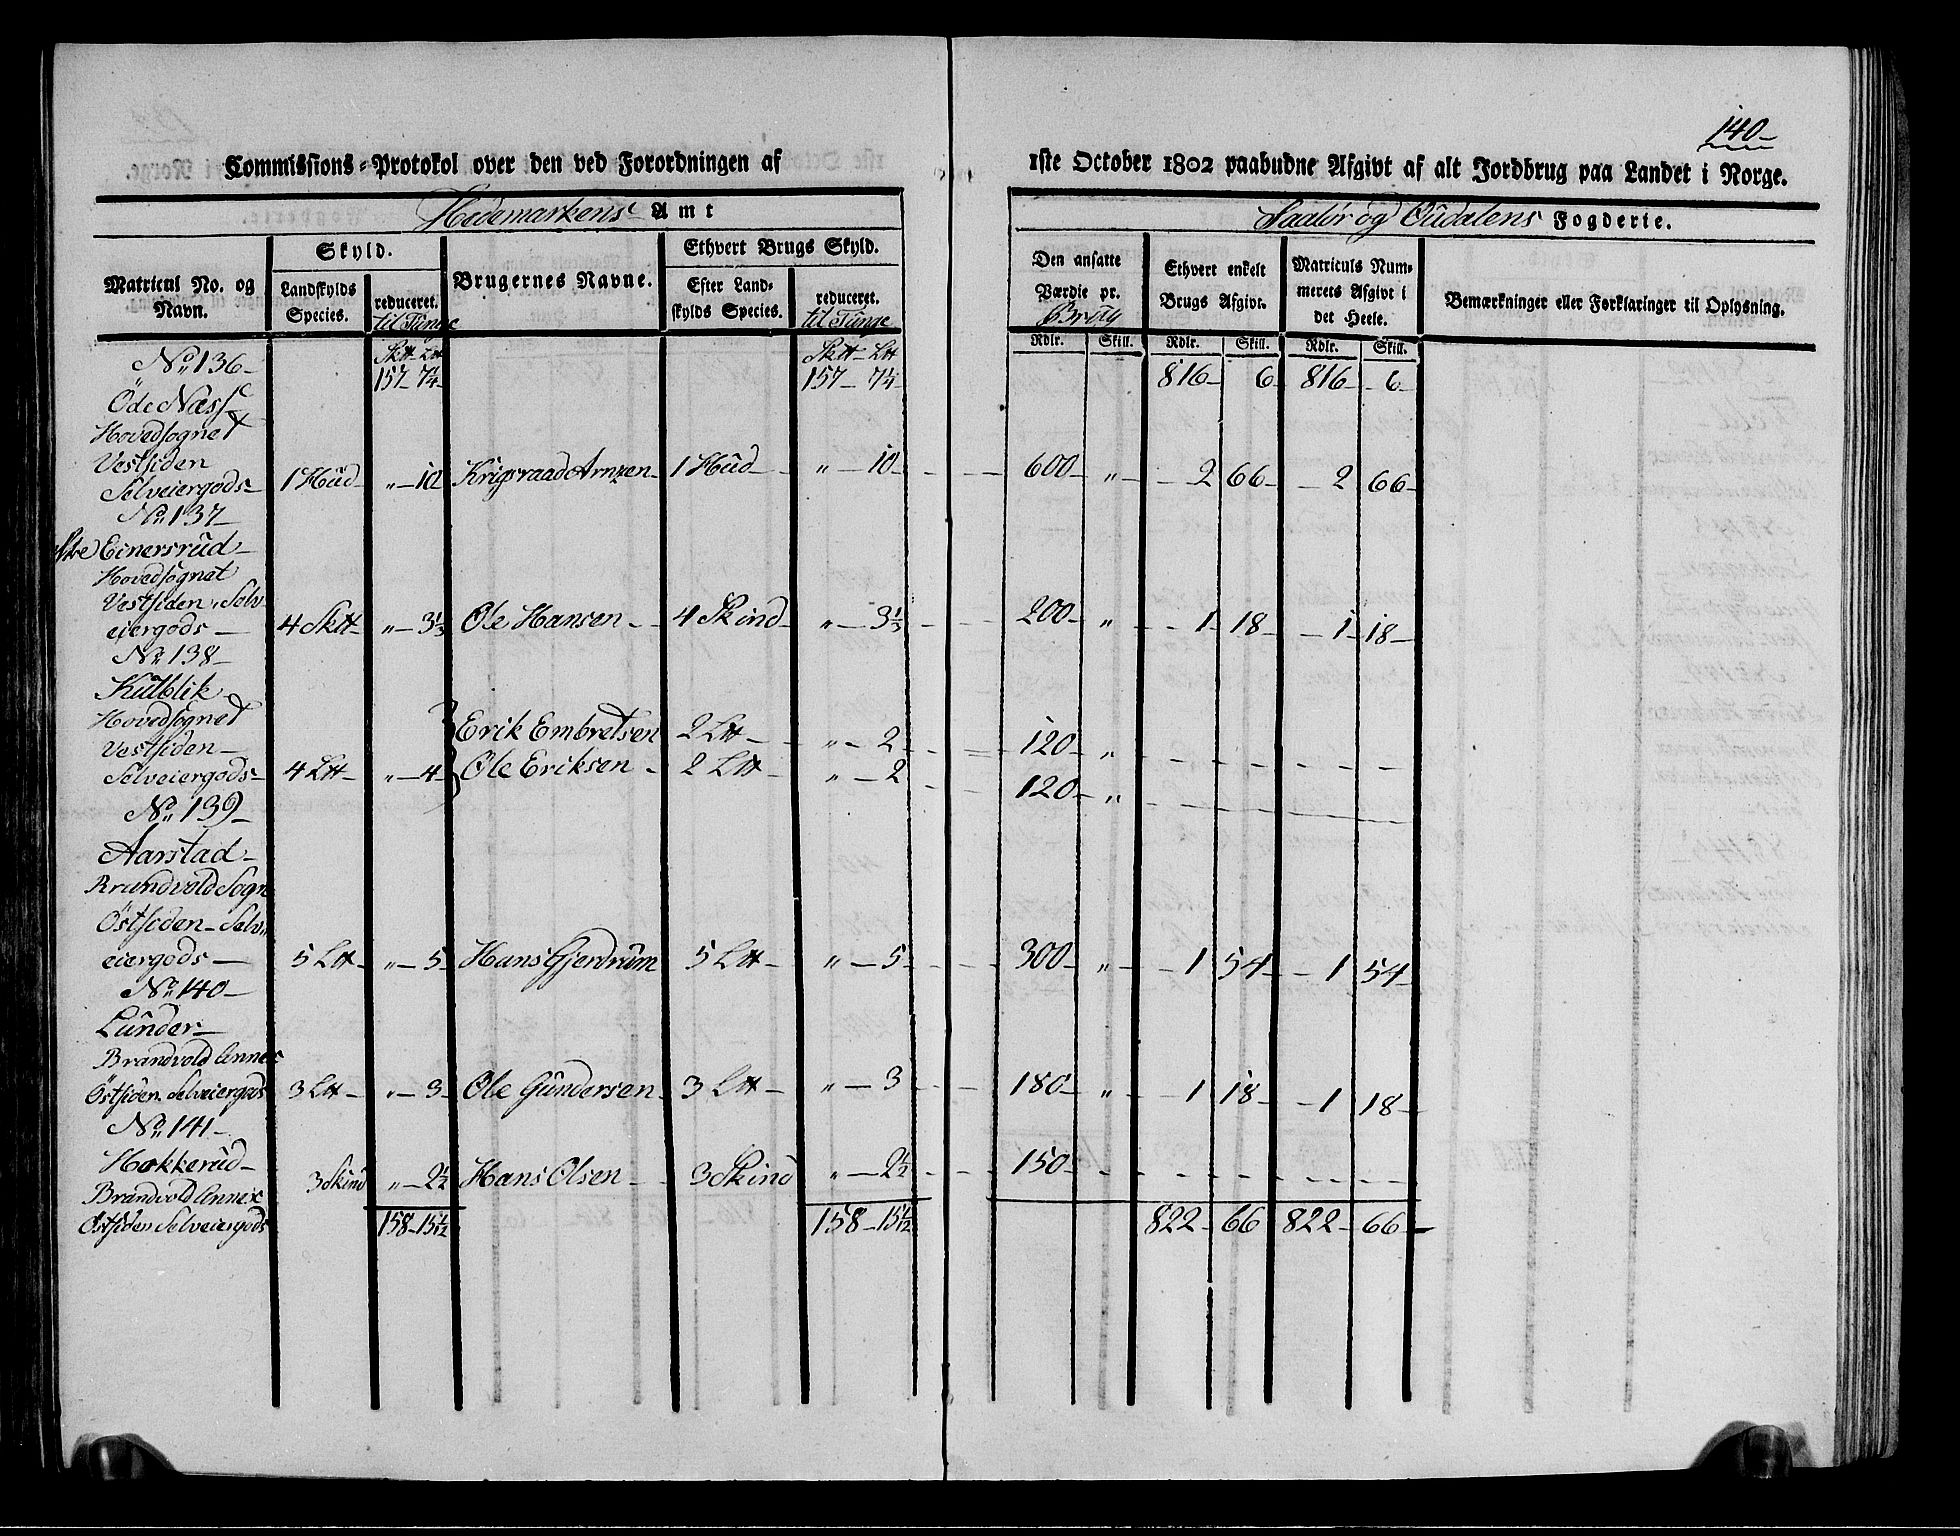 140-
Commissions-Protokol over den ved Forordningen af
1ste October 1802 paabudne Afgivt af alt Jordbrug paa Landet i Norge.
Hedemarkens Amt
Saalör og Oudalens Fogderie.
Matricul No. og Navn.
Skyld.
Landskylds Species.
reduceret. til Tunge
Brugernes Navne.
Ethvert Brugs Skyld.
Efter Landskylds Species.
reduceret. til Tunge
Den ansatte Værdie pr. Brug
Ethvert enkelt Brugs Afgivt.
Matriculs Nummerets Afgivt i det Heele.
Bemærkninger eller Forklaringer til Oplysning.
Rdlr. Skill. Rdlr. Skill. Rdlr. Skill.
No. 136- Sktt- Ltt Sktt- Ltt
157- 7¼ 157- 7¼ 816- 6- 816- 6-
Öde Næss
Hovedsognet
Vestsiden
Selveiergods- 1 Hud- „-10 Krigsraad Arnzen- 1 Hud- „-10- 600- „- 2 66- 2 66-
No. 137-
Einersrud-
Hovedsognet
Vestsiden, Selv-
eiergods- 4 Sktt- „-3⅓ Ole Hansen- 4 Skind- „-3⅓ 200- „- 1- 18- 1- 18-
No. 138-
Kulblik-
Hovedsognet
Vestsiden- Erik Embretsen 2 Ltt- „- 2- 120- „-
Selveiergods- 4 Ltt- „-4- Ole Eriksen- 2 Ltt- „- 2 120- „-
No. 139-
Aarstad-
Brundvold Sogn
Östsiden- Selv-
eiergods- 5 Ltt- „-5- Hans Gjerdrum 5 Ltt- „-5- 300- „- 1 54- 1 54-
No. 140-
Lunder-
Brandvold Annex
Östsiden Selveiergods 3 Ltt- „-3- Ole Gundersen- 3 Ltt- „-3- 180- „- 1 18- 1 18-
No. 141-
Hokkerud-
3 Skind „-2½ Hans Olsen- 3 Skind „-2½ 150-
Brandvold Annex
Östsiden Selveiergods 158-15 1/12 158-15 1/12 822- 66 822- 66-